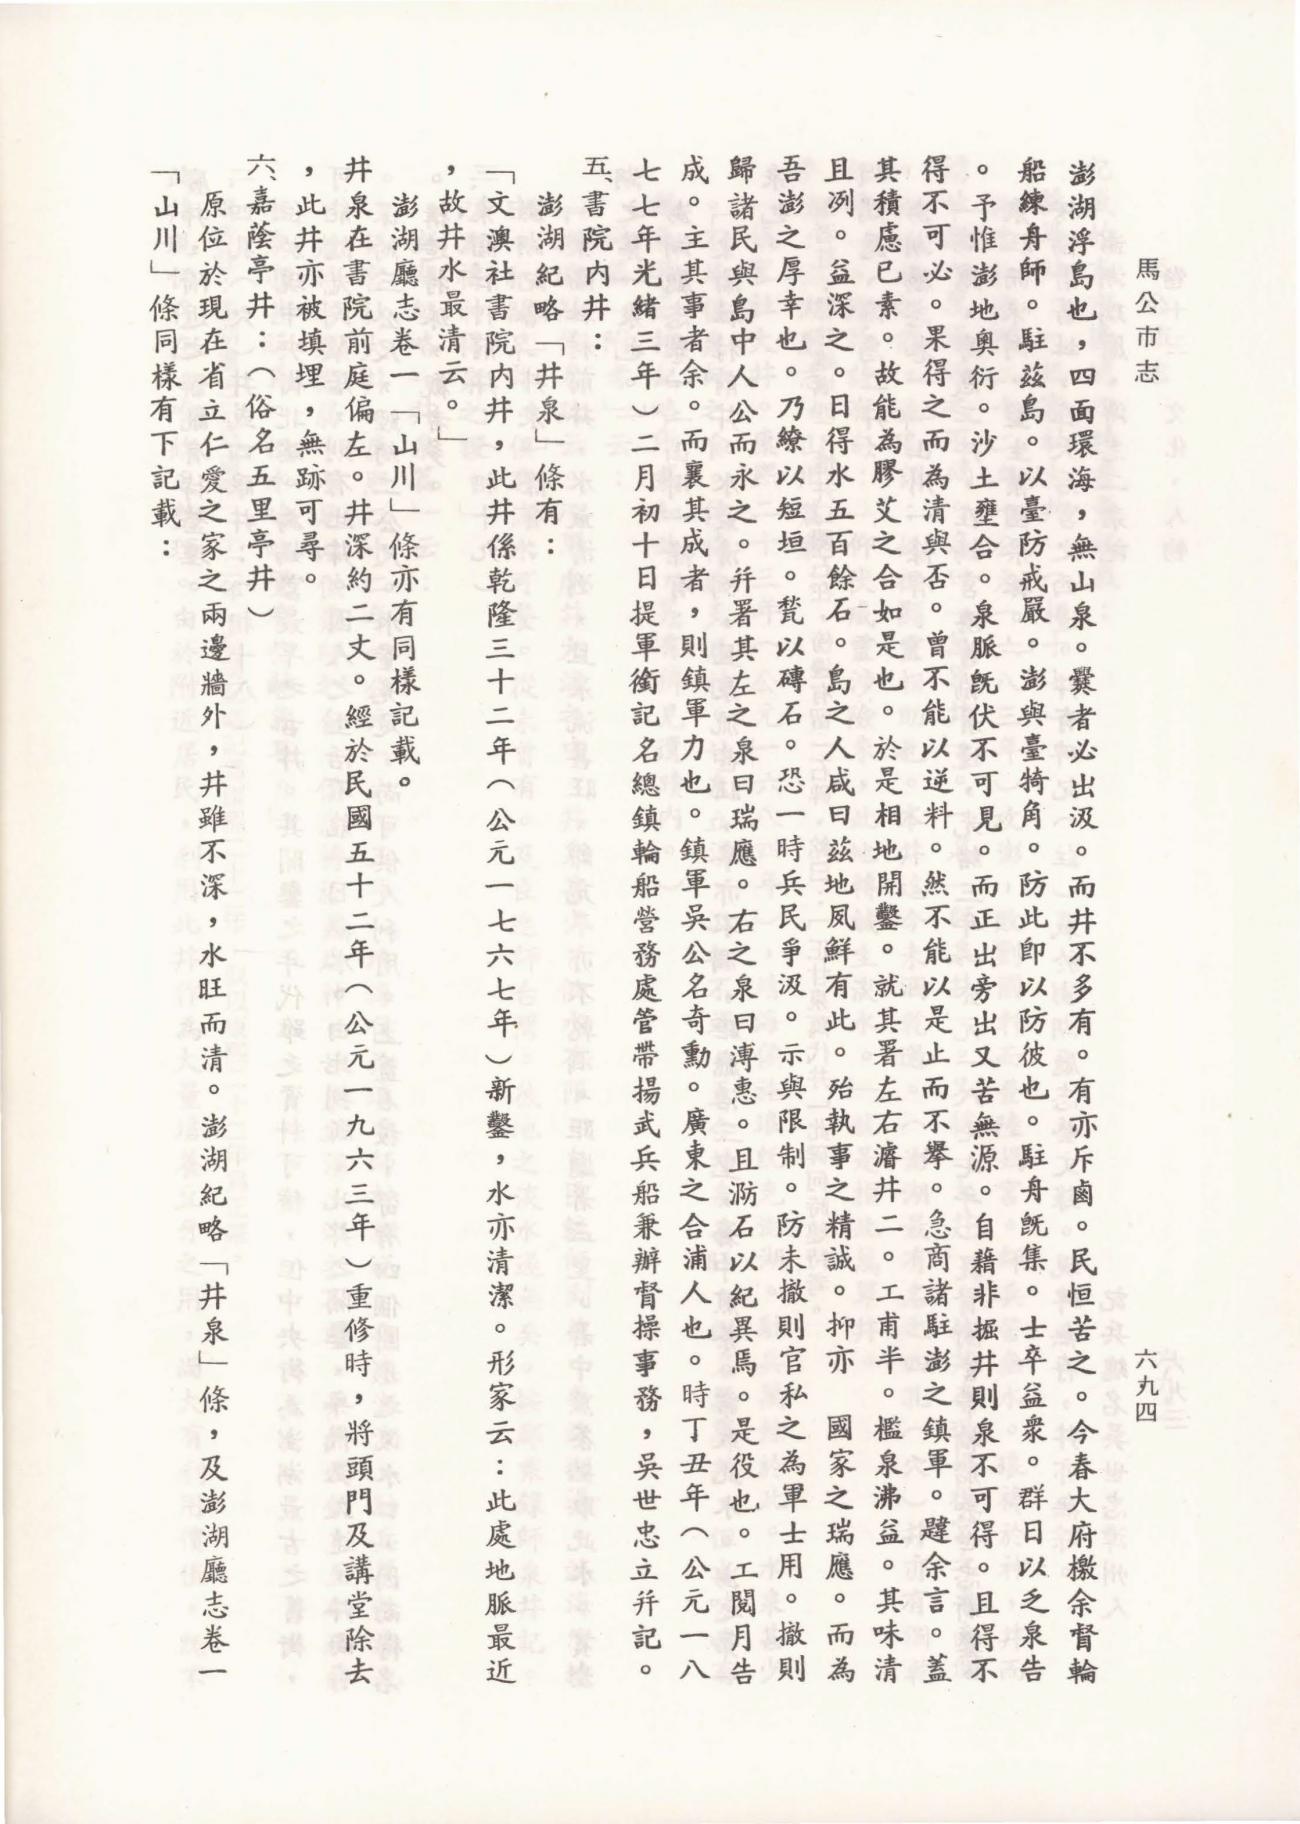 馬公市志
六九四
澎湖浮島也，四面環海，無山泉。爨者必出汲。而井不多有。有亦斥鹵。民恒苦之。今春大府檄余督輪
船練舟師。駐茲島。以臺防戒嚴。澎與臺犄角。防此卽以防彼也。駐舟旣集。士卒益衆。群日以乏泉告
。予惟澎地奥衍。沙土壅合。泉脈旣伏不可見。而正出旁出又苦無源。自藉非掘井則泉不可得。且得不
得不可必。果得之而為清與否。曾不能以逆料。然不能以是止而不擧。急商諸駐澎之鎮軍。韙余言。蓋
其積慮已素。故能為膠艾之合如是也。於是相地開鑿。就其署左右濬井二。工甫半。檻泉沸益。其味清
且冽。益深之。日得水五百餘石。島之人咸曰茲地夙鮮有此。殆執事之精誠。抑亦　國家之瑞應。而為
吾澎之厚幸也。乃繚以短垣。甃以磚石。恐一時兵民爭汲。示與限制。防未撤則官私之為軍士用。撤則
歸諸民與島中人公而永之。幷署其左之泉曰瑞應。右之泉曰溥惠。且泐石以紀異焉。是役也。工閱月告
成。主其事者余。而襄其成者，則鎮軍力也。鎮軍吳公名奇勳。廣東之合浦人也。時丁丑年（公元一八
七七年光緒三年）二月初十日提軍銜記名總鎮輪船營務處管帶揚武兵船兼辦督操事務，吳世忠立幷記。
五、書院內井：
澎湖紀略「井泉」條有：
「文澳社書院內井，此井係乾隆三十二年（公元一七六七年）新鑿，水亦清潔。形家云：此處地脈最近
，故井水最清云。」
澎湖廳志卷一「山川」條亦有同樣記載。
井泉在書院前庭偏左。井深約二丈。經於民國五十二年（公元一九六三年）重修時，將頭門及講堂除去
，此井亦被填埋，無跡可尋。
六、嘉蔭亭井：（俗名五里亭井）
原位於現在省立仁愛之家之兩邊牆外，井雖不深，水旺而清。澎湖紀略「井泉」條，及澎湖廳志卷一
「山川」條同樣有下記載：